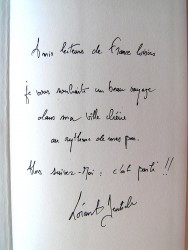 Amis lecteurs de France Loisirs
je vous souhaite un beau voyage
dans ma ville chérie
au rythme de mes pas.
Vous suivez-moi : c'est parti !!
Lorànt